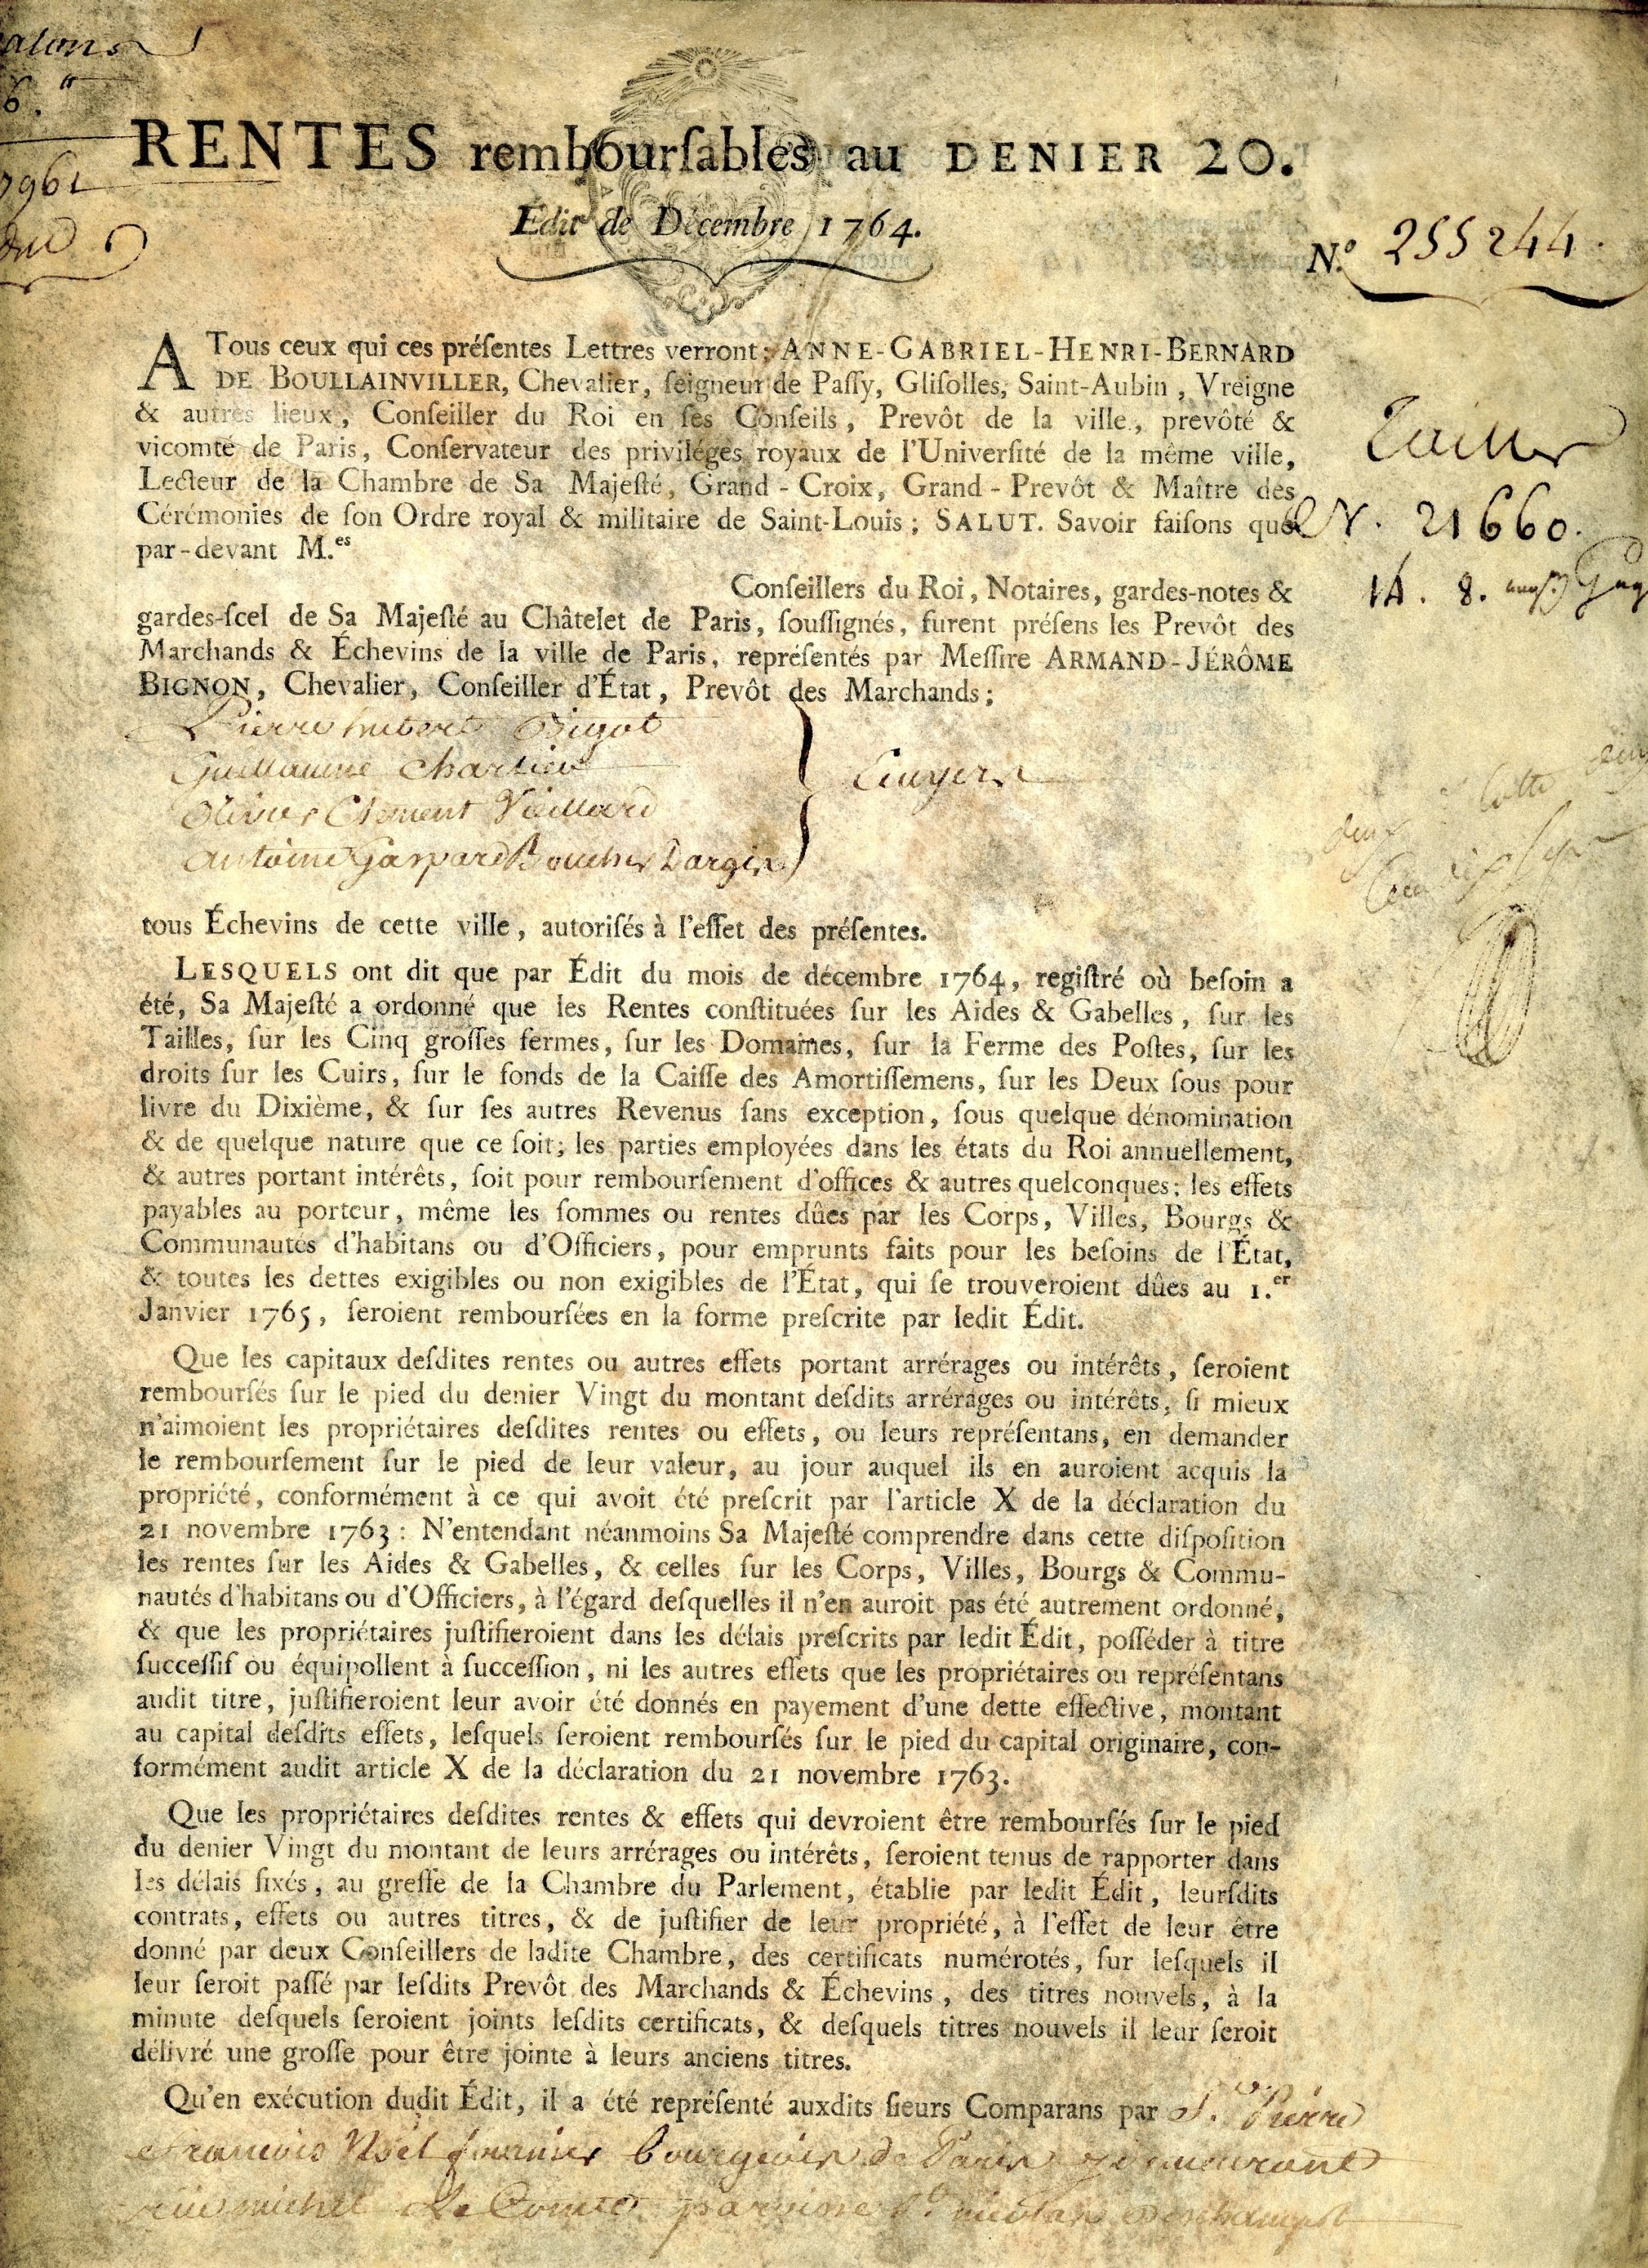 RENTES remboursables au DENIER 20.
Édit de Décembre 1764.
N.º 255244.
A Tous ceux qui ces présentes Lettres verront: ANNE-GABRIEL-HENRI-BERNARD
DE BOULLAINVILLER, Chevalier, seigneur de Passy, Glisolles, Saint-Aubin, Vreigne
& autres lieux, Conseiller du Roi en ses Conseils, Prevôt de la ville, prevôté &
vicomté de Paris, Conservateur des priviléges royaux de l'Université de la même ville,
Lecteur de la Chambre de Sa Majesté, Grand-Croix, Grand-Prevôt & Maître des
Cérémonies de son Ordre royal & militaire de Saint-Louis; SALUT. Savoir faisons que
par-devant M.es
N. 21660.
14. 8.
Conseillers du Roi, Notaires, gardes-notes &
gardes-scel de Sa Majesté au Châtelet de Paris, soussignés, furent présens les Prevôt des
Marchands & Échevins de la ville de Paris, représentés par Messire ARMAND-JÉRÔME
BIGNON, Chevalier, Conseiller d'État, Prevôt des Marchands;
Pierre hubert Bigot
Guillaume Charlier
Olivier Clement Vieillard
Antoine Gaspard Boucher Dargis
Ecuyers
tous Échevins de cette ville, autorisés à l'effet des présentes.
LESQUELS ont dit que par Édit du mois de décembre 1764, registré où besoin a
été, Sa Majesté a ordonné que les Rentes constituées sur les Aides & Gabelles, sur les
Tailles, sur les Cinq grosses fermes, sur les Domaines, sur la Ferme des Postes, sur les
droits sur les Cuirs, sur le fonds de la Caisse des Amortissemens, sur les Deux sous pour
livre du Dixième, & sur ses autres Revenus sans exception, sous quelque dénomination
& de quelque nature que ce soit; les parties employées dans les états du Roi annuellement,
& autres portant intérêts, soit pour remboursement d'offices & autres quelconques; les effets
payables au porteur, même les sommes ou rentes dûes par les Corps, Villes, Bourgs &
Communautés d'habitans ou d'Officiers, pour emprunts faits pour les besoins de l'État,
& toutes les dettes exigibles ou non exigibles de l'État, qui se trouveroient dûes au 1.er
Janvier 1765, seroient remboursées en la forme prescrite par ledit Édit.
Que les capitaux desdites rentes ou autres effets portant arrérages ou intérêts, seroient
remboursés sur le pied du denier Vingt du montant desdits arrérages ou intérêts, si mieux
n'aimoient les propriétaires desdites rentes ou effets, ou leurs représentans, en demander
le remboursement sur le pied de leur valeur, au jour auquel ils en auroient acquis la
propriété, conformément à ce qui avoit été prescrit par l'article X de la déclaration du
21 novembre 1763: N'entendant néanmoins Sa Majesté comprendre dans cette disposition
les rentes sur les Aides & Gabelles, & celles sur les Corps, Villes, Bourgs & Commu-
nautés d'habitans ou d'Officiers, à l'égard desquelles il n'en auroit pas été autrement ordonné,
& que les propriétaires justifieroient dans les délais prescrits par ledit Édit, posséder à titre
successif ou équipollent à succession, ni les autres effets que les propriétaires ou représentans
audit titre, justifieroient leur avoir été donnés en payement d'une dette effective, montant
au capital desdits effets, lesquels seroient remboursés sur le pied du capital originaire, con-
formément audit article X de la déclaration du 21 novembre 1763.
Que les propriétaires desdites rentes & effets qui devroient être remboursés sur le pied
du denier Vingt du montant de leurs arrérages ou intérêts, seroient tenus de rapporter dans
les délais fixés, au greffe de la Chambre du Parlement, établie par ledit Édit, leursdits
contrats, effets ou autres titres, & de justifier de leur propriété, à l'effet de leur être
donné par deux Conseillers de ladite Chambre, des certificats numérotés, sur lesquels il
leur seroit passé par lesdits Prevôt des Marchands & Échevins, des titres nouvels, à la
minute desquels seroient joints lesdits certificats, & desquels titres nouvels il leur seroit
délivré une grosse pour être jointe à leurs anciens titres.
Qu'en exécution dudit Édit, il a été représenté auxdits sieurs Comparans par S. Pierre
francois Noël fournier bourgeois de Paris y demeurant
rue michel Le Comte paroisse St. nicolas deschamps